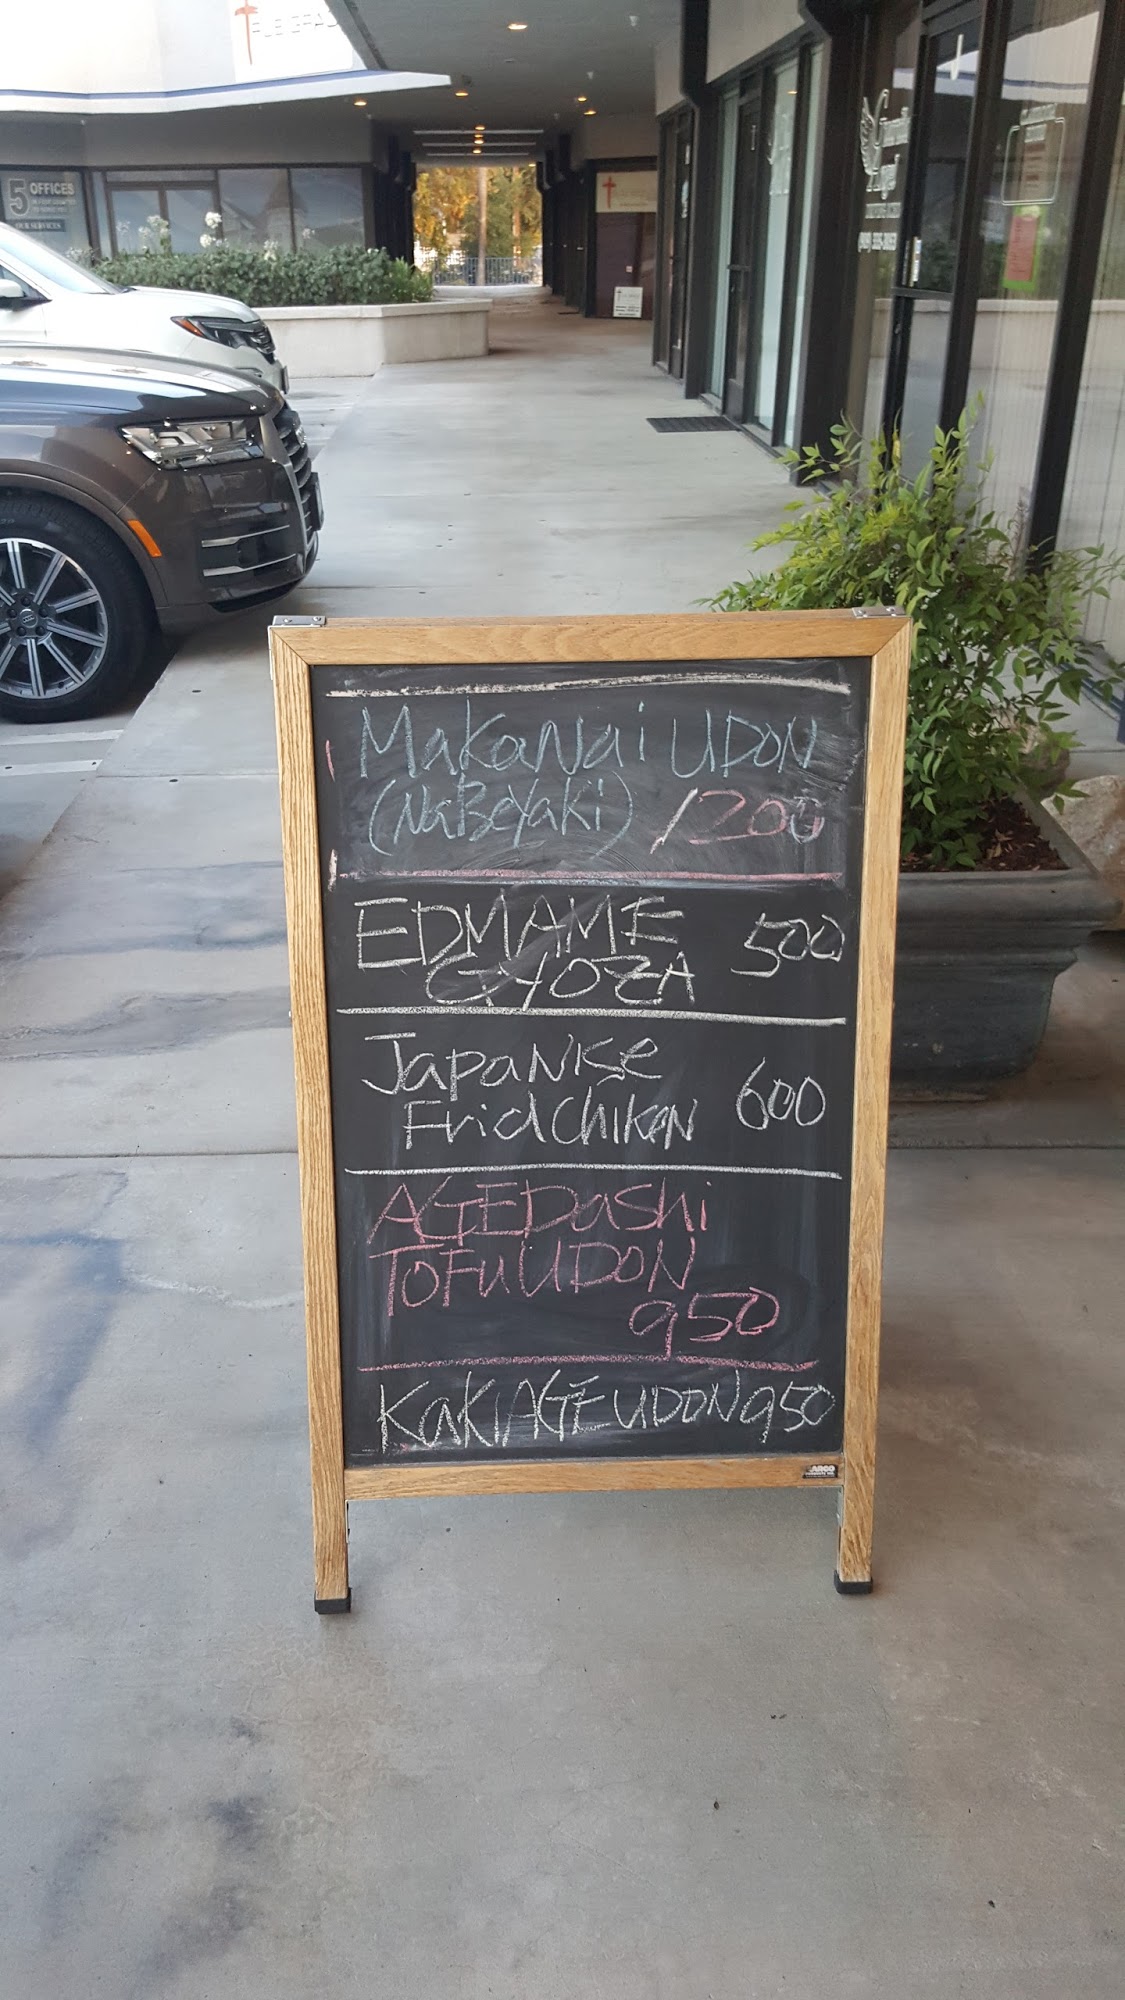 5 OFFICES
OUR SERVICES
Guardian
Angel
MaKaNai UDON
(NaBeYaKi) 1200
EDMAME
GYOZA 500
JapaNKse
Frid ChiKeN 600
AGEDashi
TOFU UDON
950
KaKiAGE UDON 950
ARCO